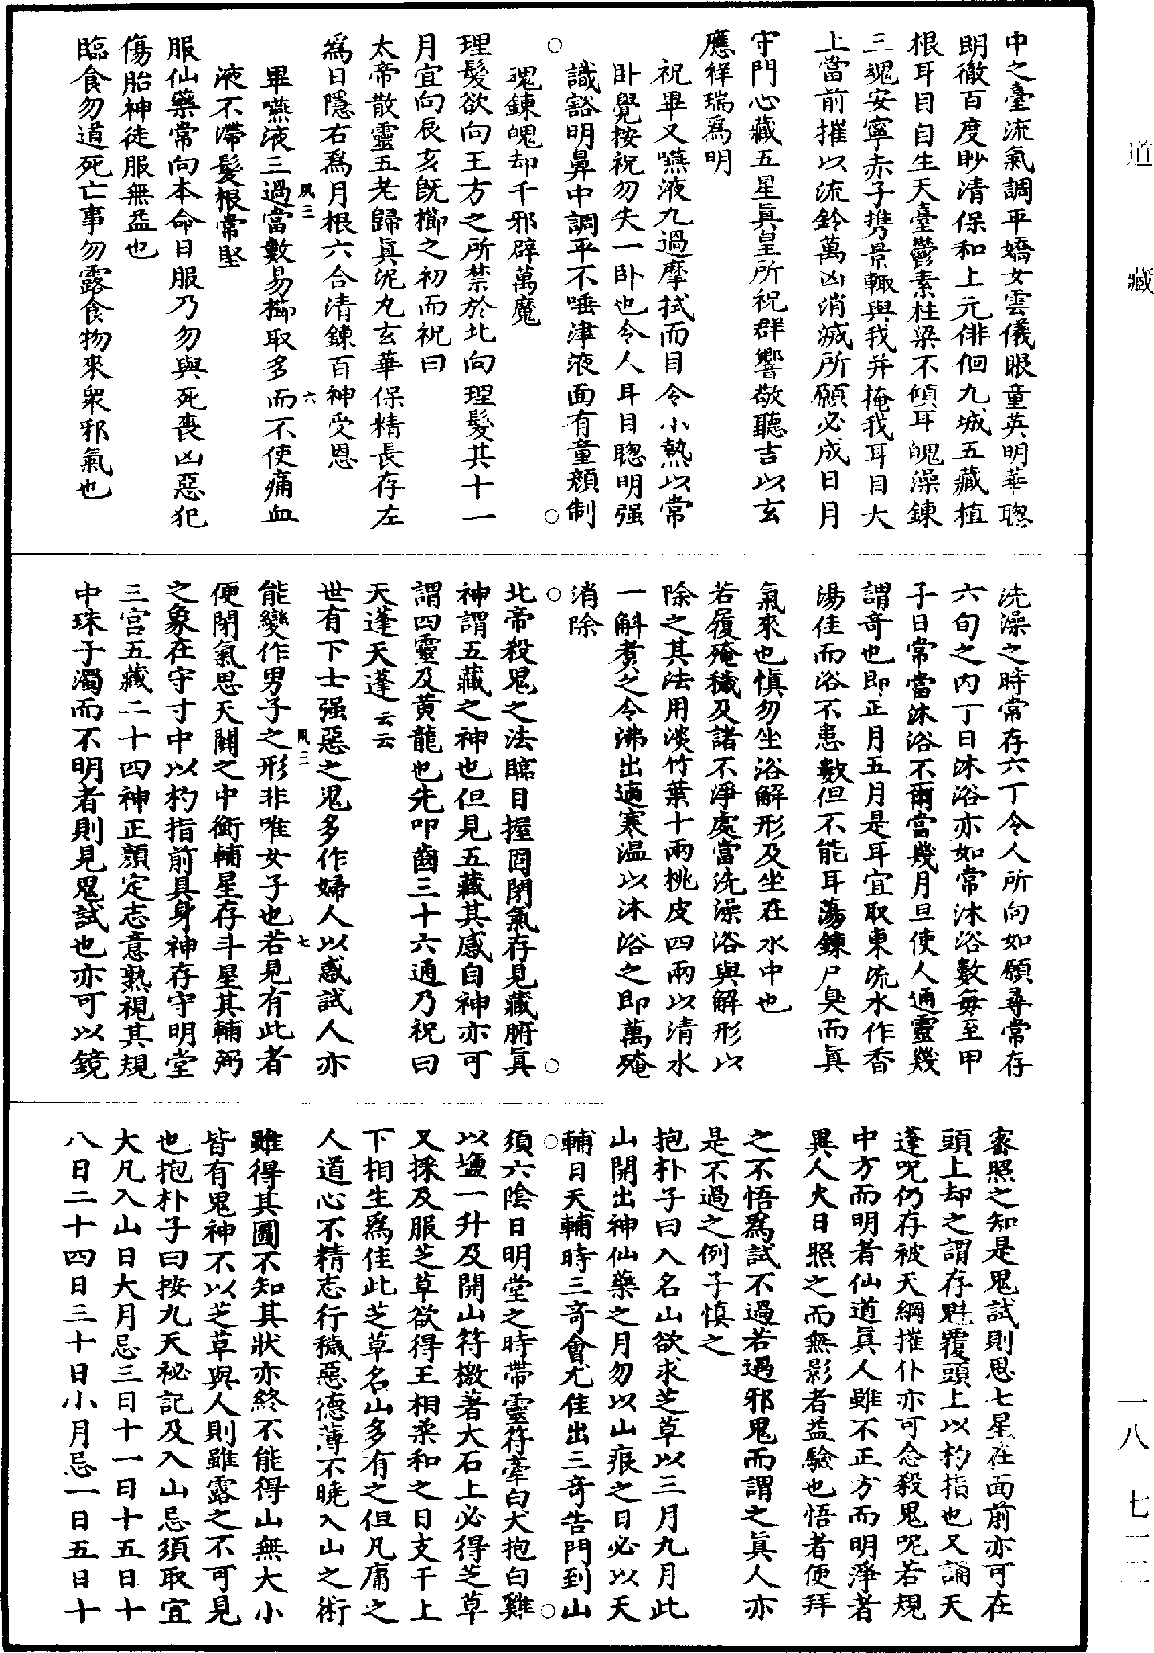 中之臺流氣調平嬌女雲儀眼童英明華聰
朗徹百度眇清保和上元徘徊九城五藏植
根耳目自生天臺鬱素柱梁不傾耳魄澡鍊
三魂安寧赤子攜景輙與我并掩我耳目大
上當前摧以流鈴萬凶消滅所願必成日月
守門心藏五星眞皇所祝群響敬聽吉以玄
應祥瑞爲明
祝畢又嚥液九過摩拭而目令小熱以常
卧覺按祝勿失一卧也令人耳目聰明强
識豁明鼻中調平不唾津液面有童顔制
魂鍊魄却千邪辟萬魔
理髮欲向王方之所禁於北向理髮其十一
月宜向辰亥旣櫛之初而祝曰
太帝散靈五老歸眞泥丸玄華保精長存左
爲日隱右爲月根六合清鍊百神受恩
畢嚥液三過當數易櫛取多而不使痛血
液不滯髮根常堅
風三
六
服仙藥常向本命日服乃勿與死喪凶惡犯
傷胎神徒服無益也
臨食勿道死亡事勿露食物來衆邪氣也
洗澡之時常存六丁令人所向如願尋常存
六旬之內丁日沐浴亦如常沐浴數每至甲
子日常當沐浴不爾當幾月旦使人通靈幾
謂奇也即正月五月是耳宜取東流水作香
湯佳而浴不患數但不能耳蕩鍊尸臭而眞
氣來也愼勿坐浴解形及坐在水中也
若履殗穢及諸不淨處當洗澡浴與解形以
除之其法用淡竹葉十兩桃皮四兩以清水
一斛煑之令沸出適寒温以沐浴之即萬殗
消除
北帝殺鬼之法臨目握固閉氣存見藏腑眞
神謂五藏之神也但見五藏其感自神亦可
謂四靈及黃龍也先叩齒三十六通乃祝曰
天蓬天蓬云云
世有下士强惡之鬼多作婦人以惑試人亦
風三
七
能變作男子之形非唯女子也若見有此者
便閉氣思天關之中衝輔星存斗星其輔弼
之象在守寸中以杓指前具身神存守明堂
三宫五藏二十四神正顔定志意熟視其規
中珠子濁而不明者則見鬼試也亦可以鏡
審照之知是鬼試則思七星在面前亦可在
頭上却之謂存魁覆頭上以杓指也又誦天
蓬呪仍存被天綱摧仆亦可念殺鬼呪若規
中方而明者仙道眞人雖不正方而明淨者
異人大日照之而無影者益驗也悟者便拜
之不悟爲試不過若遇邪鬼而謂之眞人亦
是不過之例子愼之
抱朴子曰入名山欲求芝草以三月九月此
山開出神仙藥之月勿以山痕之日必以天
輔日天輔時三奇會尤佳出三奇告門到山
須六陰日明堂之時帶靈符牽白犬抱白雞
以鹽一升及開山符檄著大石上必得芝草
又採及服芝草欲得王相柔和之日支干上
下相生爲佳此芝草名山多有之但凡庸之
人道心不精志行穢惡德薄不曉入山之術
雖得其圖不知其狀亦終不能得山無大小
皆有鬼神不以芝草與人則雖露之不可見
也抱朴子曰按九天祕記及入山忌須取宜
大凡入山日大月忌三日十一日十五日十
八日二十四日三十日小月忌一日五日十
道藏
一八 七一二